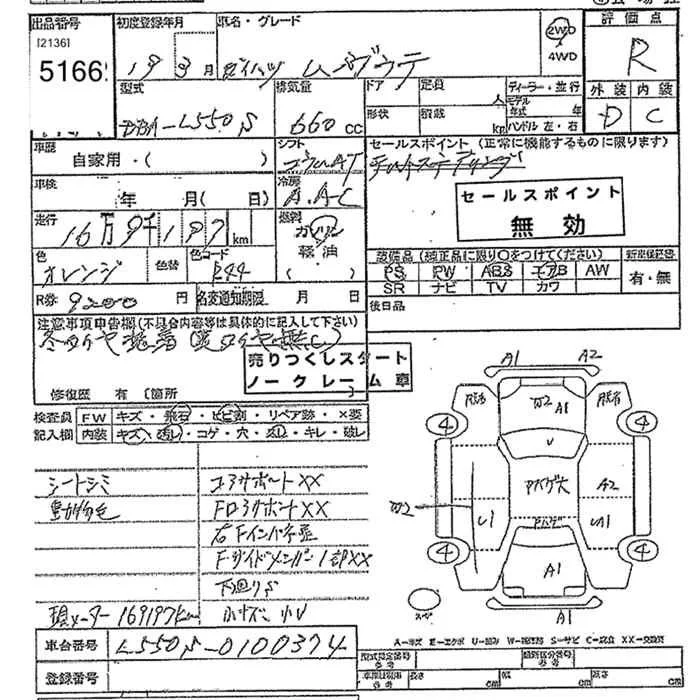 出品番号
I21361
5166
初度登録年月
19 3月
車名・グレード
ダイハツ ムーヴラテ
2WD
4WD
評価点
R
外装 内装
D C
型式
DBA-L550S
排気量
660cc
ドア
定員
人
ディーラー・並行
モデル
年式 年
形状
積載
kg
ハンドル 左・右
車歴
自家用・( )
シフト
コラムAT
セールスポイント (正常に機能するものに限ります)
車検
年 月( 日)
冷房
A.A-C
セールスポイント
無効
走行
16万9千197km
燃料
ガソリン
軽油
色
オレンジ
色替
色コード
R44
装備品(純正品に限り○をつけてください)
新車保証書
PS PW ABS エアB AW
SR ナビ TV カワ
有・無
R券 9200円
名変通知期限 月 日
後日品
注意事項申告欄(不具合内容等は具体的に記入して下さい)
冬タイヤ装着(夏タイヤ無し)
売りつくしスタート
ノークレーム車
修復歴 有 〔箇所 〕
検査員
記入欄
FW キズ・飛石・ヒビ割・リペア跡・×要
内装 キズ・汚レ・コゲ・穴・スレ・キレ・破レ
シートシミ
動物毛
コアサポートXX
右Fインパネ歪
下廻りS
現メーター169197km
小キズ 小U
A1 A2
W2 A1
U
4 4
W2
U1
Aバゲ大
A2
4 4
A1
A1
スペア
A-キズ E-エクボ U-凹み W-補修跡 S-サビ C-腐食 XX-交換済
車台番号
L550S-0100374
登録番号
型式指定番号
参考
類別区分番号
参考
長さ cm
幅 cm
高さ cm